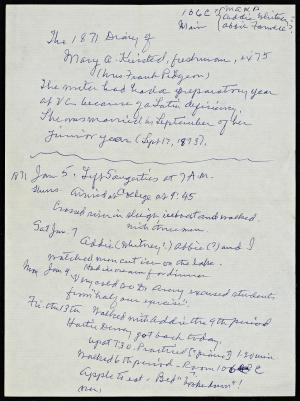 106 C - { M.A.K.P.
Main { Addie Whitney
{ Abbie
The 1871 Diary of
Mary A. Kiersted, freshman, ex 75
(Mrs. Frank Pidgeon)
The writer had had a preparatory year
at V.C. because of a Latin deficiency.
She was married in September of her
Junior year (Sept 17, 1873).
1871 Jan 5: Left Saugerties at 7 A.M.
Thurs. Arrived at College at 9:45
Crossed river in sleigh, iceboat and walked
with three men.
Sat Jan. 7
Addie (Whitney?) Abbie (?) and I
watched men cut ice on the Lake.
Had ice cream for dinner
Mon. Jan 9
Very cold so Dr. Avery excused students
from "half our exercise".
Fri the 13th Walked with Addie the 9th period
Hattie Dewey got back today.
up at 7.30. Practised (piano) 120 min
Walked 6th period - Room 106 C
Apple to eat. Bed
over